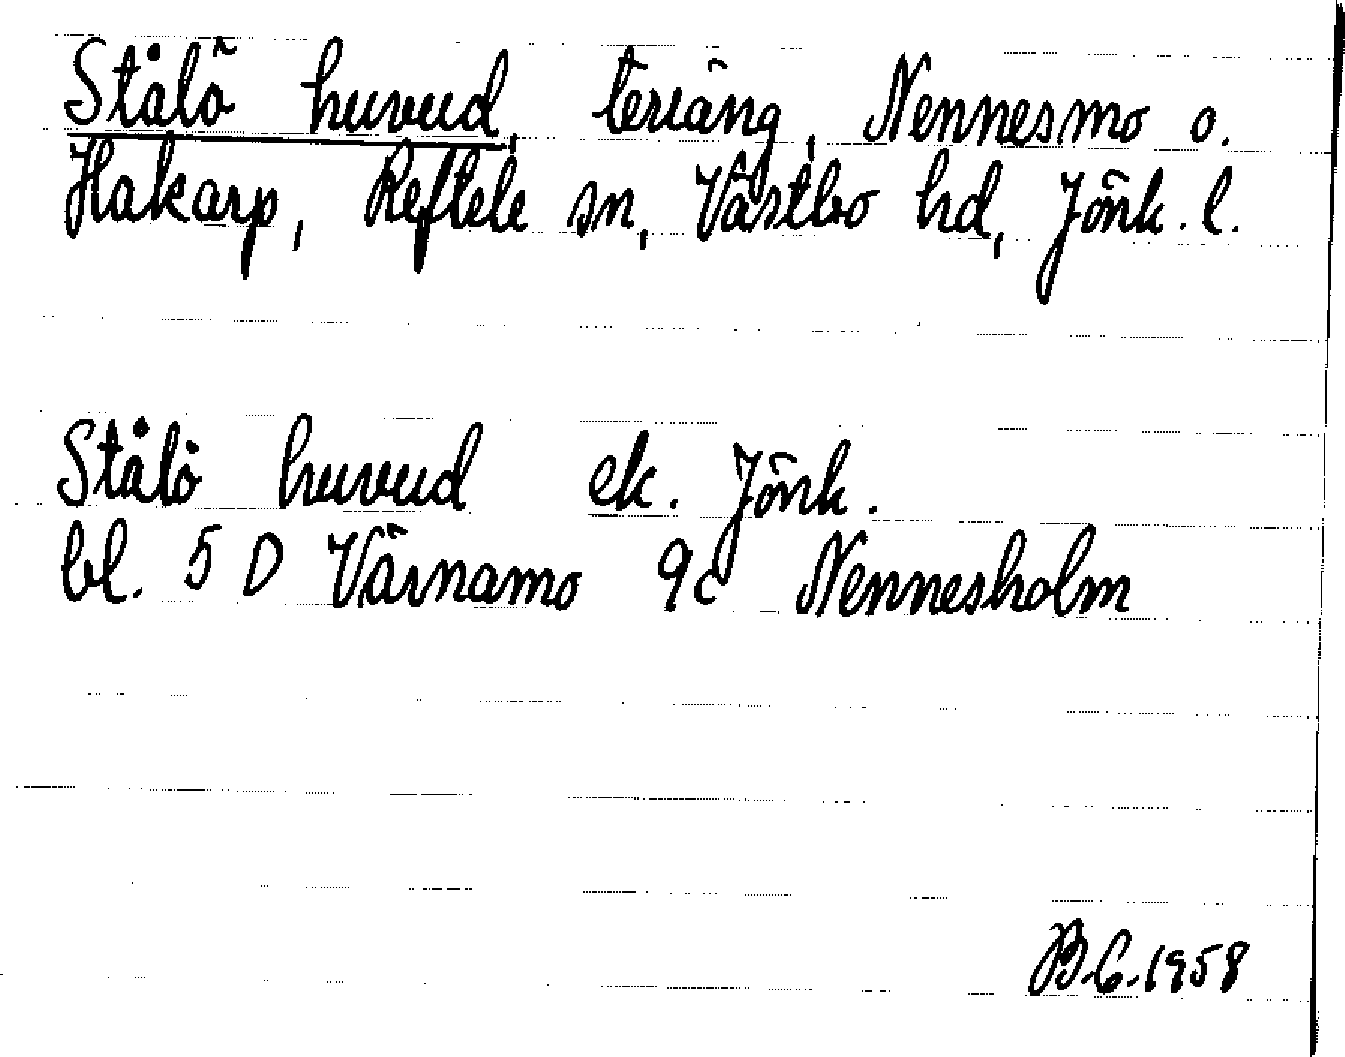 Stålö huvud, terräng, Nennesmo o.
Hakarp, Reftele sn, Västbo hd, Jönk. l.
Stålö huvud ek. Jönk.
bl. 5 D Värnamo 9c Nennesholm
B.G. 1958